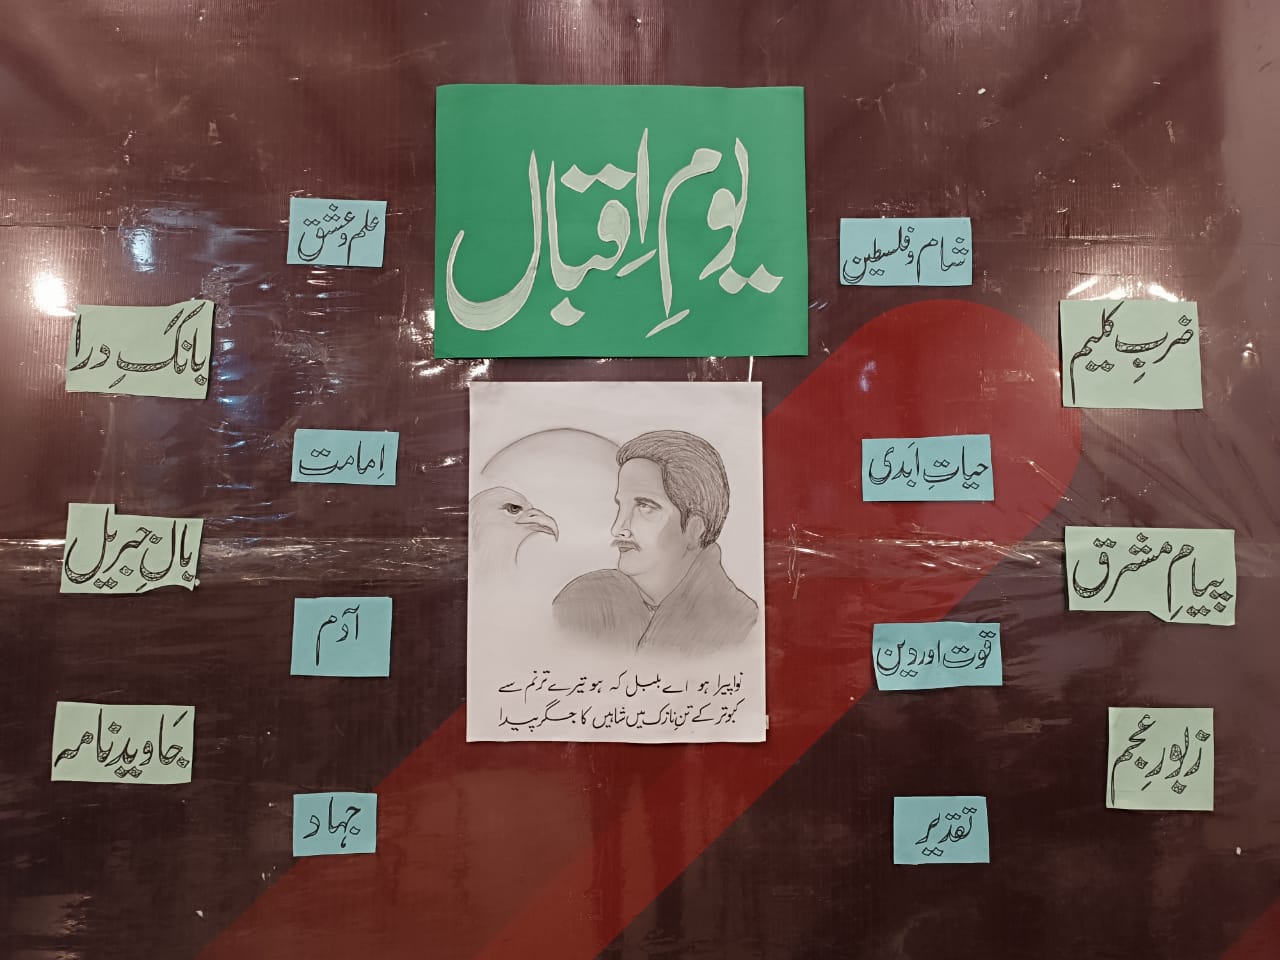 یومِ اِقبال
شام و فلسطین
علم و عشق
ضربِ کلیم
بانگِ درا
حیاتِ اَبدی
اِمامت
پیامِ مشرق
بالِ جبریل
قوت اور دین
آدم
نوا پیرا ہو اے بلبل کہ ہو تیرے ترنم سے
کبوتر کے تنِ نازک میں شاہیں کا جگر پیدا
زبورِ عجم
جَاوید نامہ
تقدیر
جہاد